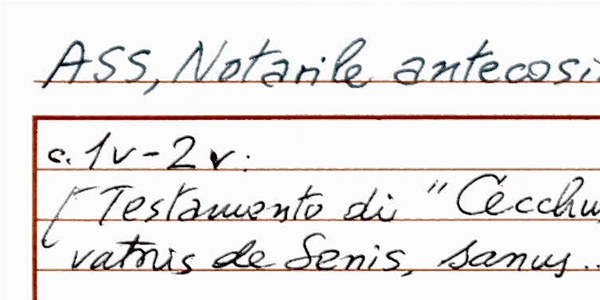 ASS, Notarile antecosi
c. 1v-2v:
[Testamento di "Cecchu
vatoris de Senis, sanus..